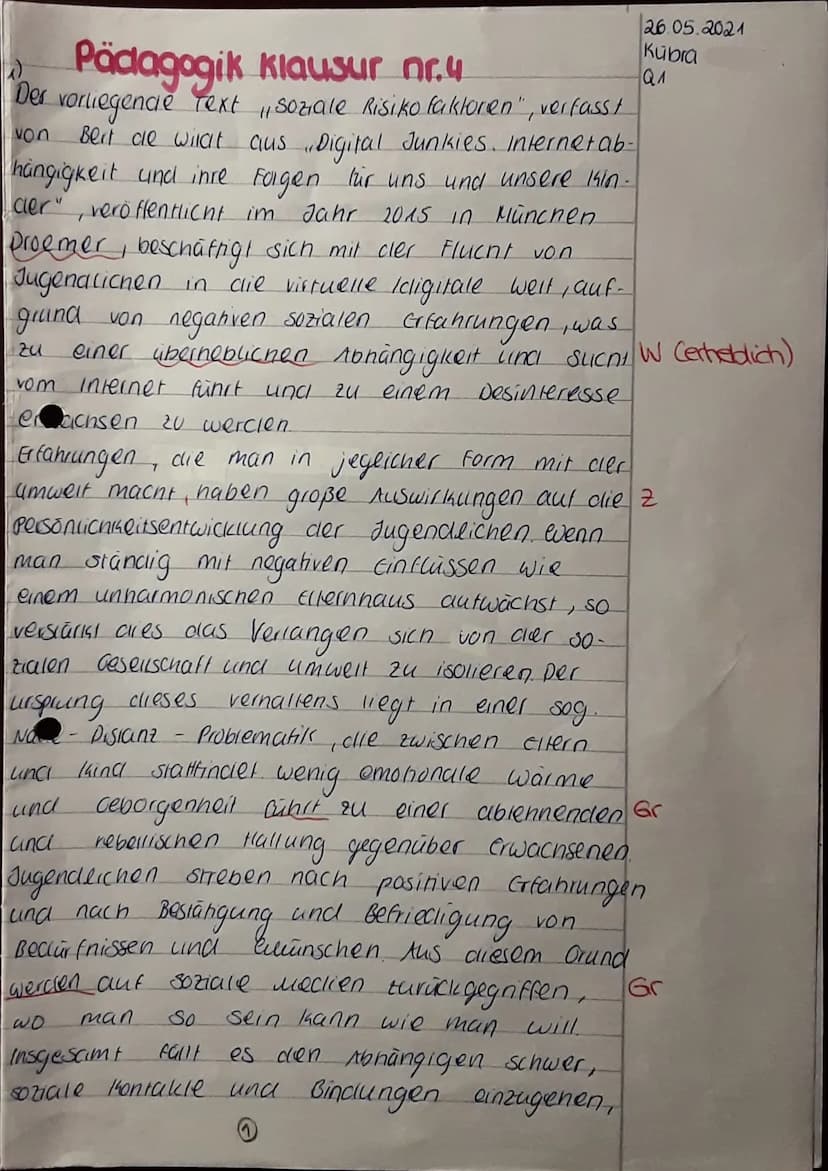 26.05.2021
Kübra
Q1
Pädagogik Klausur nr.4
1)
Der vorliegende Text „soziale Risikofaktoren", verfasst
von Bert de Wildt aus „Digital Junkies. Internetab-
hängigkeit und ihre Folgen für uns und unsere Kin-
der", veröffentlicht im Jahr 2015 in München
Droemer, beschäftigt sich mit der Flucht von
Jugendlichen in die virtuelle/digitale Welt, auf-
grund von negativen sozialen Erfahrungen, was
zu einer überheblichen Abhängigkeit und Sucht W (erheblich)
vom Internet führt und zu einem Desinteresse
er achsen zu werden
Erfahrungen, die man in jegeicher Form mit der
Umwelt macht, haben große Auswirkungen auf die Z
Persönlichkeitsentwicklung der Jugendlichen. Wenn
man ständig mit negativen Einflüssen wie
einem unharmonischen Elternhaus aufwächst, so
verstärkt dies das Verlangen sich von der so-
zialen Gesellschaft und Umwelt zu isolieren. Der
Ursprung dieses Verhaltens liegt in einer sog.
- Distanz - Problematik, die zwischen Eltern
und Kind stattfindet. wenig emotionale Wärme
und Geborgenheit führt zu einer ablehnenden Gr
und rebellischen Haltung gegenüber Erwachsenen.
Jugendlichen streben nach positiven Erfahrungen
und nach Bestätigung und Befriedigung von
Bedürfnissen und Wünschen. Aus diesem Grund
werden auf soziale Medien zurückgegriffen, Gr
wo man so sein kann wie man will.
Insgesamt fällt es den Abhängigen schwer,
soziale Kontakte und Bindungen einzugehen,
1